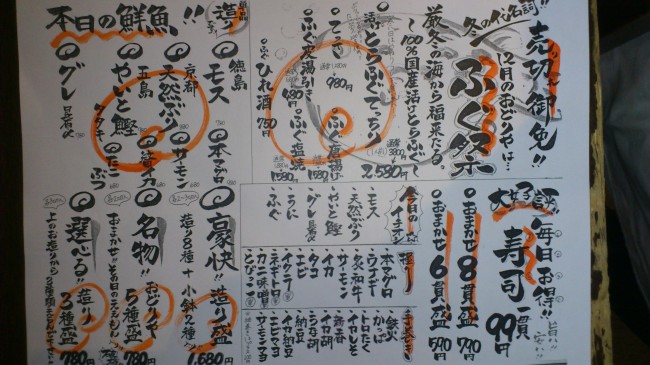 売切御免!!
冬の代名詞!!
12月のおどりやは…
ふぐ祭
厳冬の海から福来たる。
100%国産活けとらふぐ
活とらふぐてっちり
2,580円
980円
ふぐ皮湯引き
480円
ふぐ唐揚げ
ふぐ塩焼
1,580円
ふぐひれ酒 750円
本日の鮮魚!!
徳島
モス
本マグロ
京都
天然ぶり
サーモン
五島
やいと鰹
タタキ
たこ
ぶつ
グレ
大好評!
毎日お得!!
寿司
一貫
99円
旨い!!
安い!!
おまかせ8貫盛 790円
おまかせ6貫盛 590円
今日のイチオシ
モス
天然ぶり
やいと鰹
グレ
うに
ふぐ
握り
本マグロ
ウナギ
サーモン
炙和牛
イカ
タコ
エビ
イクラ
ネギトロ
カニ味噌
とびっこ
手巻き
鉄火
かっぱ
トロたく
イカ納豆
納豆
エビマヨ
サーモンマヨ
豪快!!
造り盛
造り8種+小鉢2種
1,680円
名物!!
おどりや
5種盛
780円
選べる!!
造り
3種盛
780円
上のお造りから